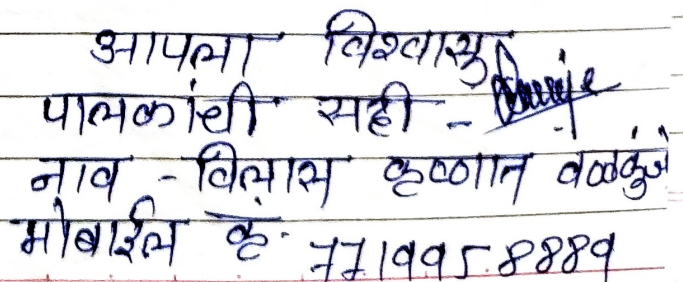 आपला विश्वासु
पालकांची सही -
नाव - विलास कृष्णात वळकुंजे
मोबाईल क्र. 7719958889